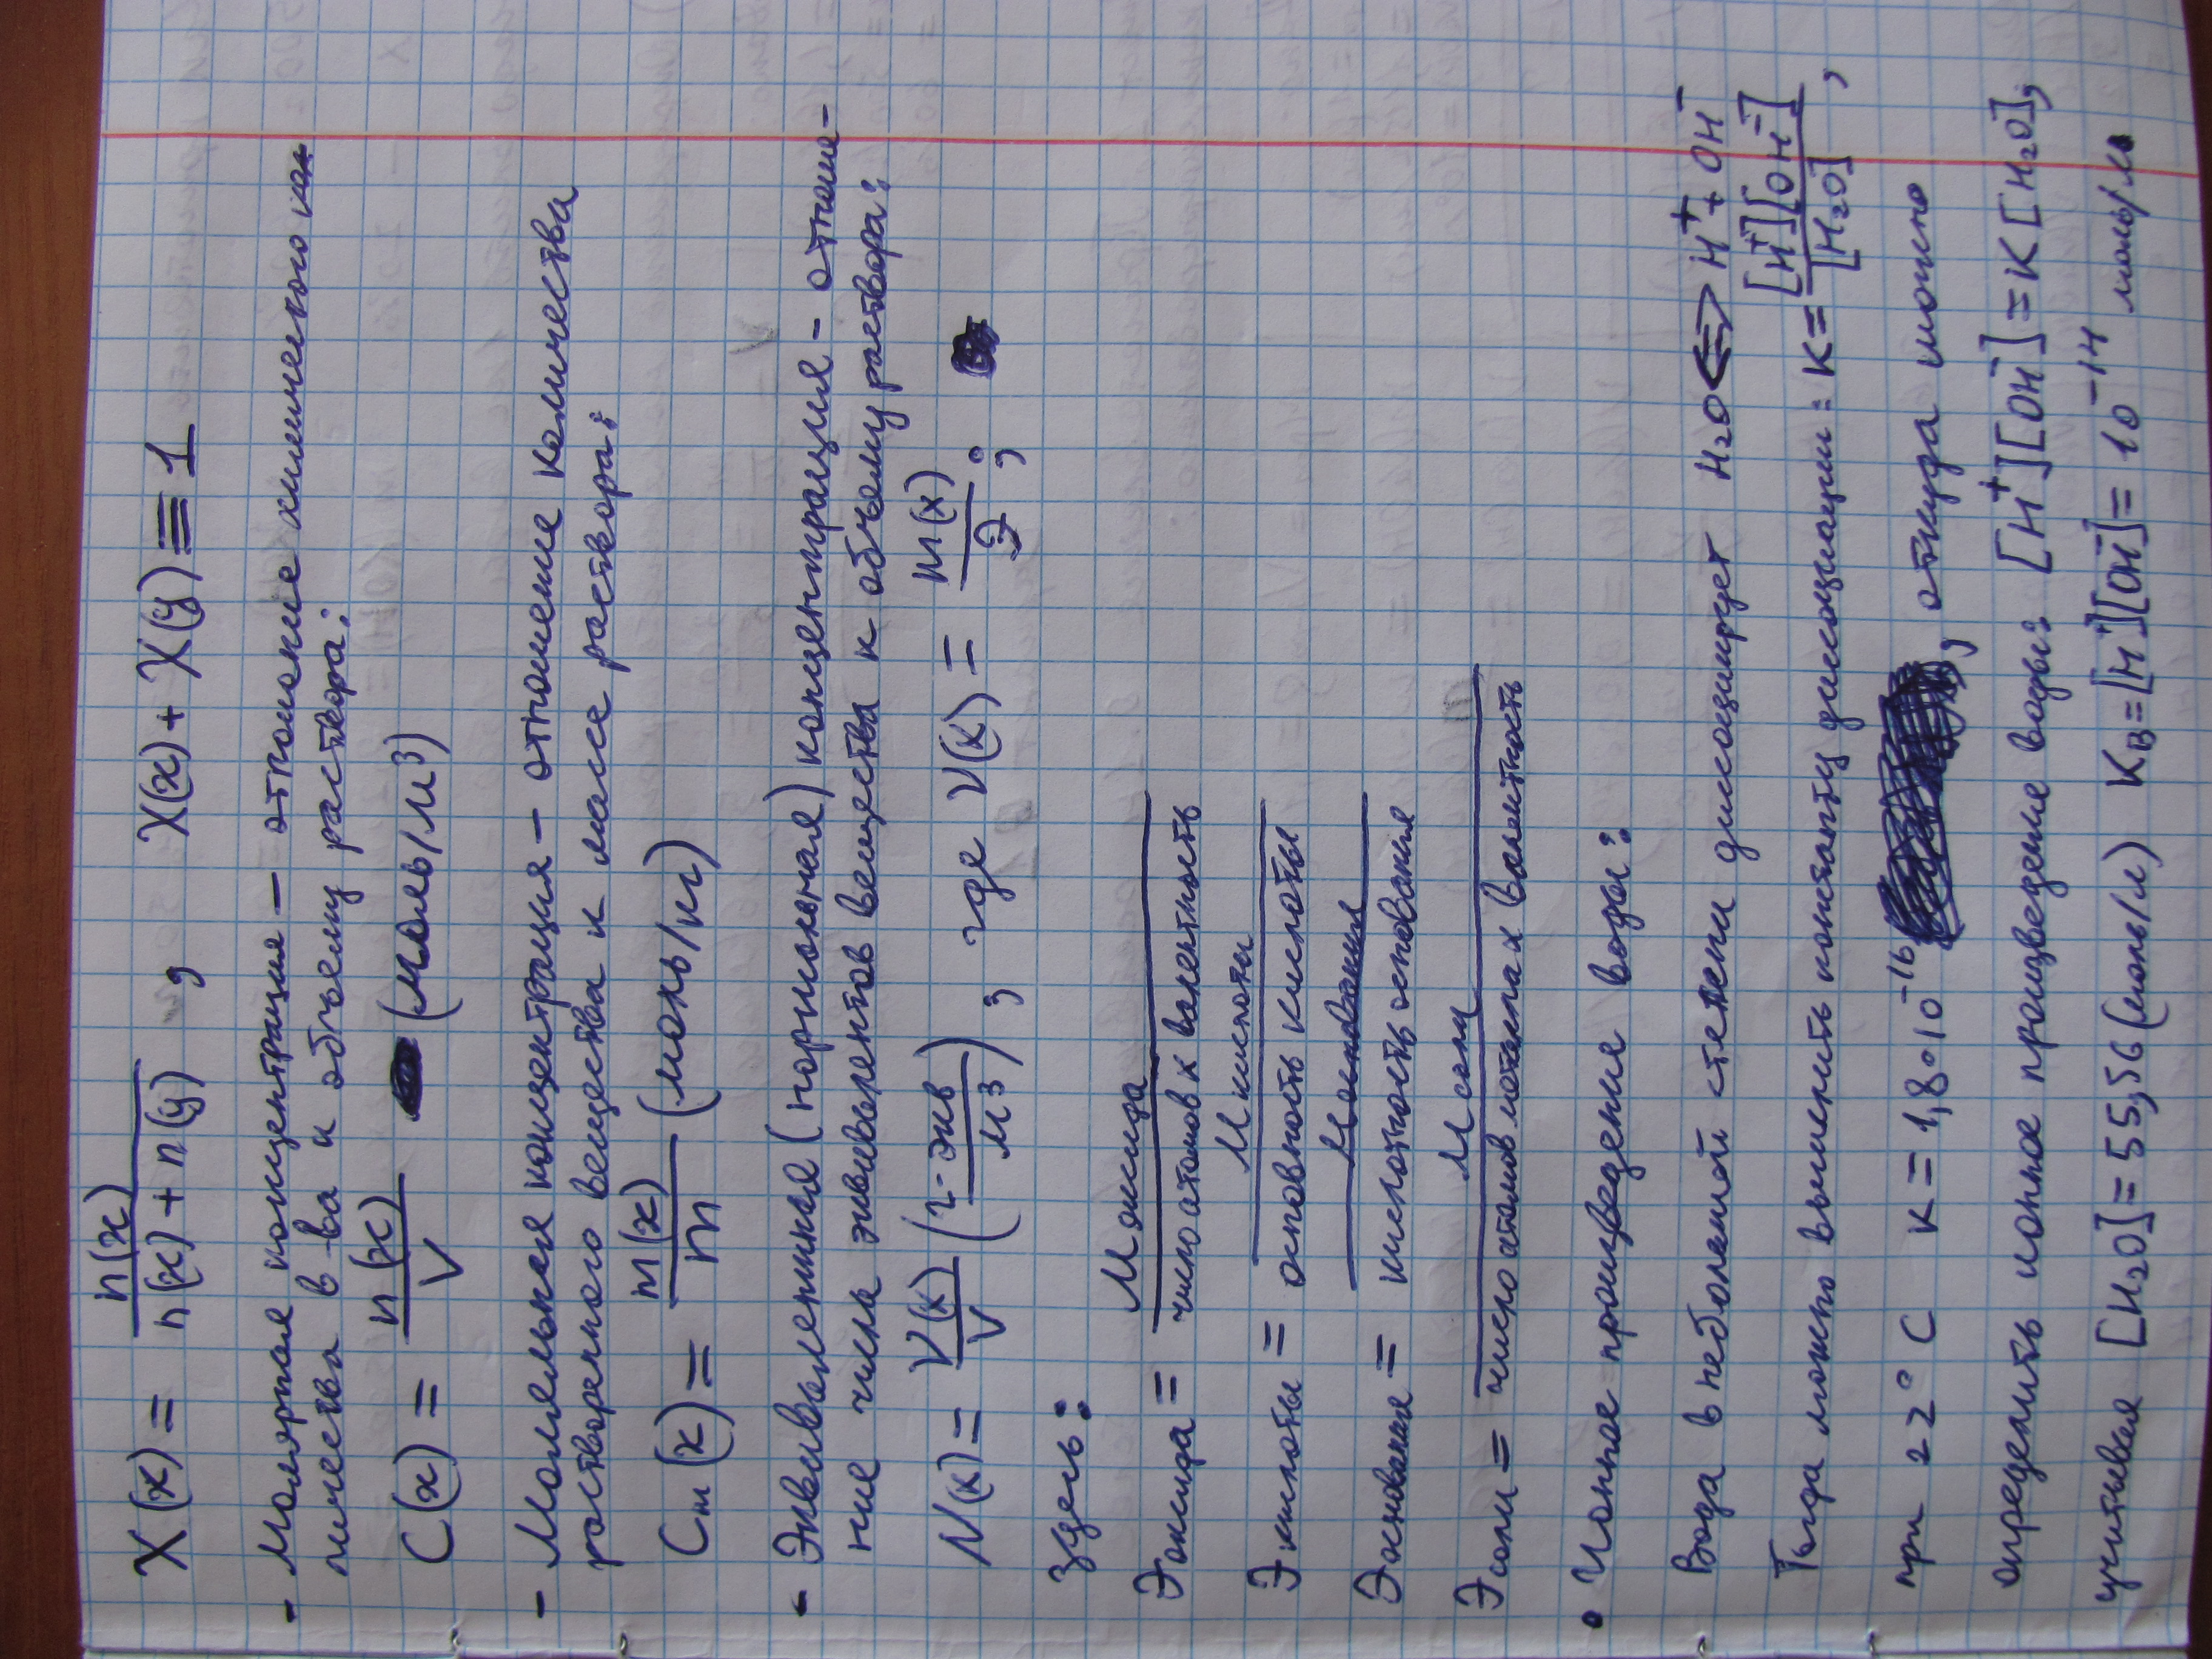 X(x) = n(x) / (n(x) + n(y)) , X(x) + X(y) ≡ 1
- Молярная концентрация — отношение химического кол-
личества в-ва к объему раствора:
C(x) = n(x) / V (моль/м³)
- Моляльная концентрация — отношение количества
растворенного вещества к массе раствора:
Cm(x) = m(x) / m (моль/кг)
- Эквивалентная (нормальная) концентрация - отноше-
ние числа эквивалентов вещества к объему раствора:
N(x) = ν(x) / V (г-экв / м³), где ν(x) = m(x) / Э ;
здесь:
Э оксида = M оксида / число атомов x валентность
Э кислоты = M кислоты / основность кислоты
Э основания = M основания / кислотность основания
Э соли = M соли / число атомов металла x валентность
• Ионное произведение воды:
Вода в небольшой степени диссоциирует H₂O ⇔ H⁺ + OH⁻
Тогда можно вычислить константу диссоциации: K = [H⁺][OH⁻] / [H₂O] ,
при 22° C K = 1,8·10⁻¹⁶ , откуда можно
определить ионное произведение воды: [H⁺][OH⁻] = K [H₂O];
учитывая [H₂O] = 55,56 (моль/л) Kв = [H⁺][OH⁻] = 10⁻¹⁴ моль/л